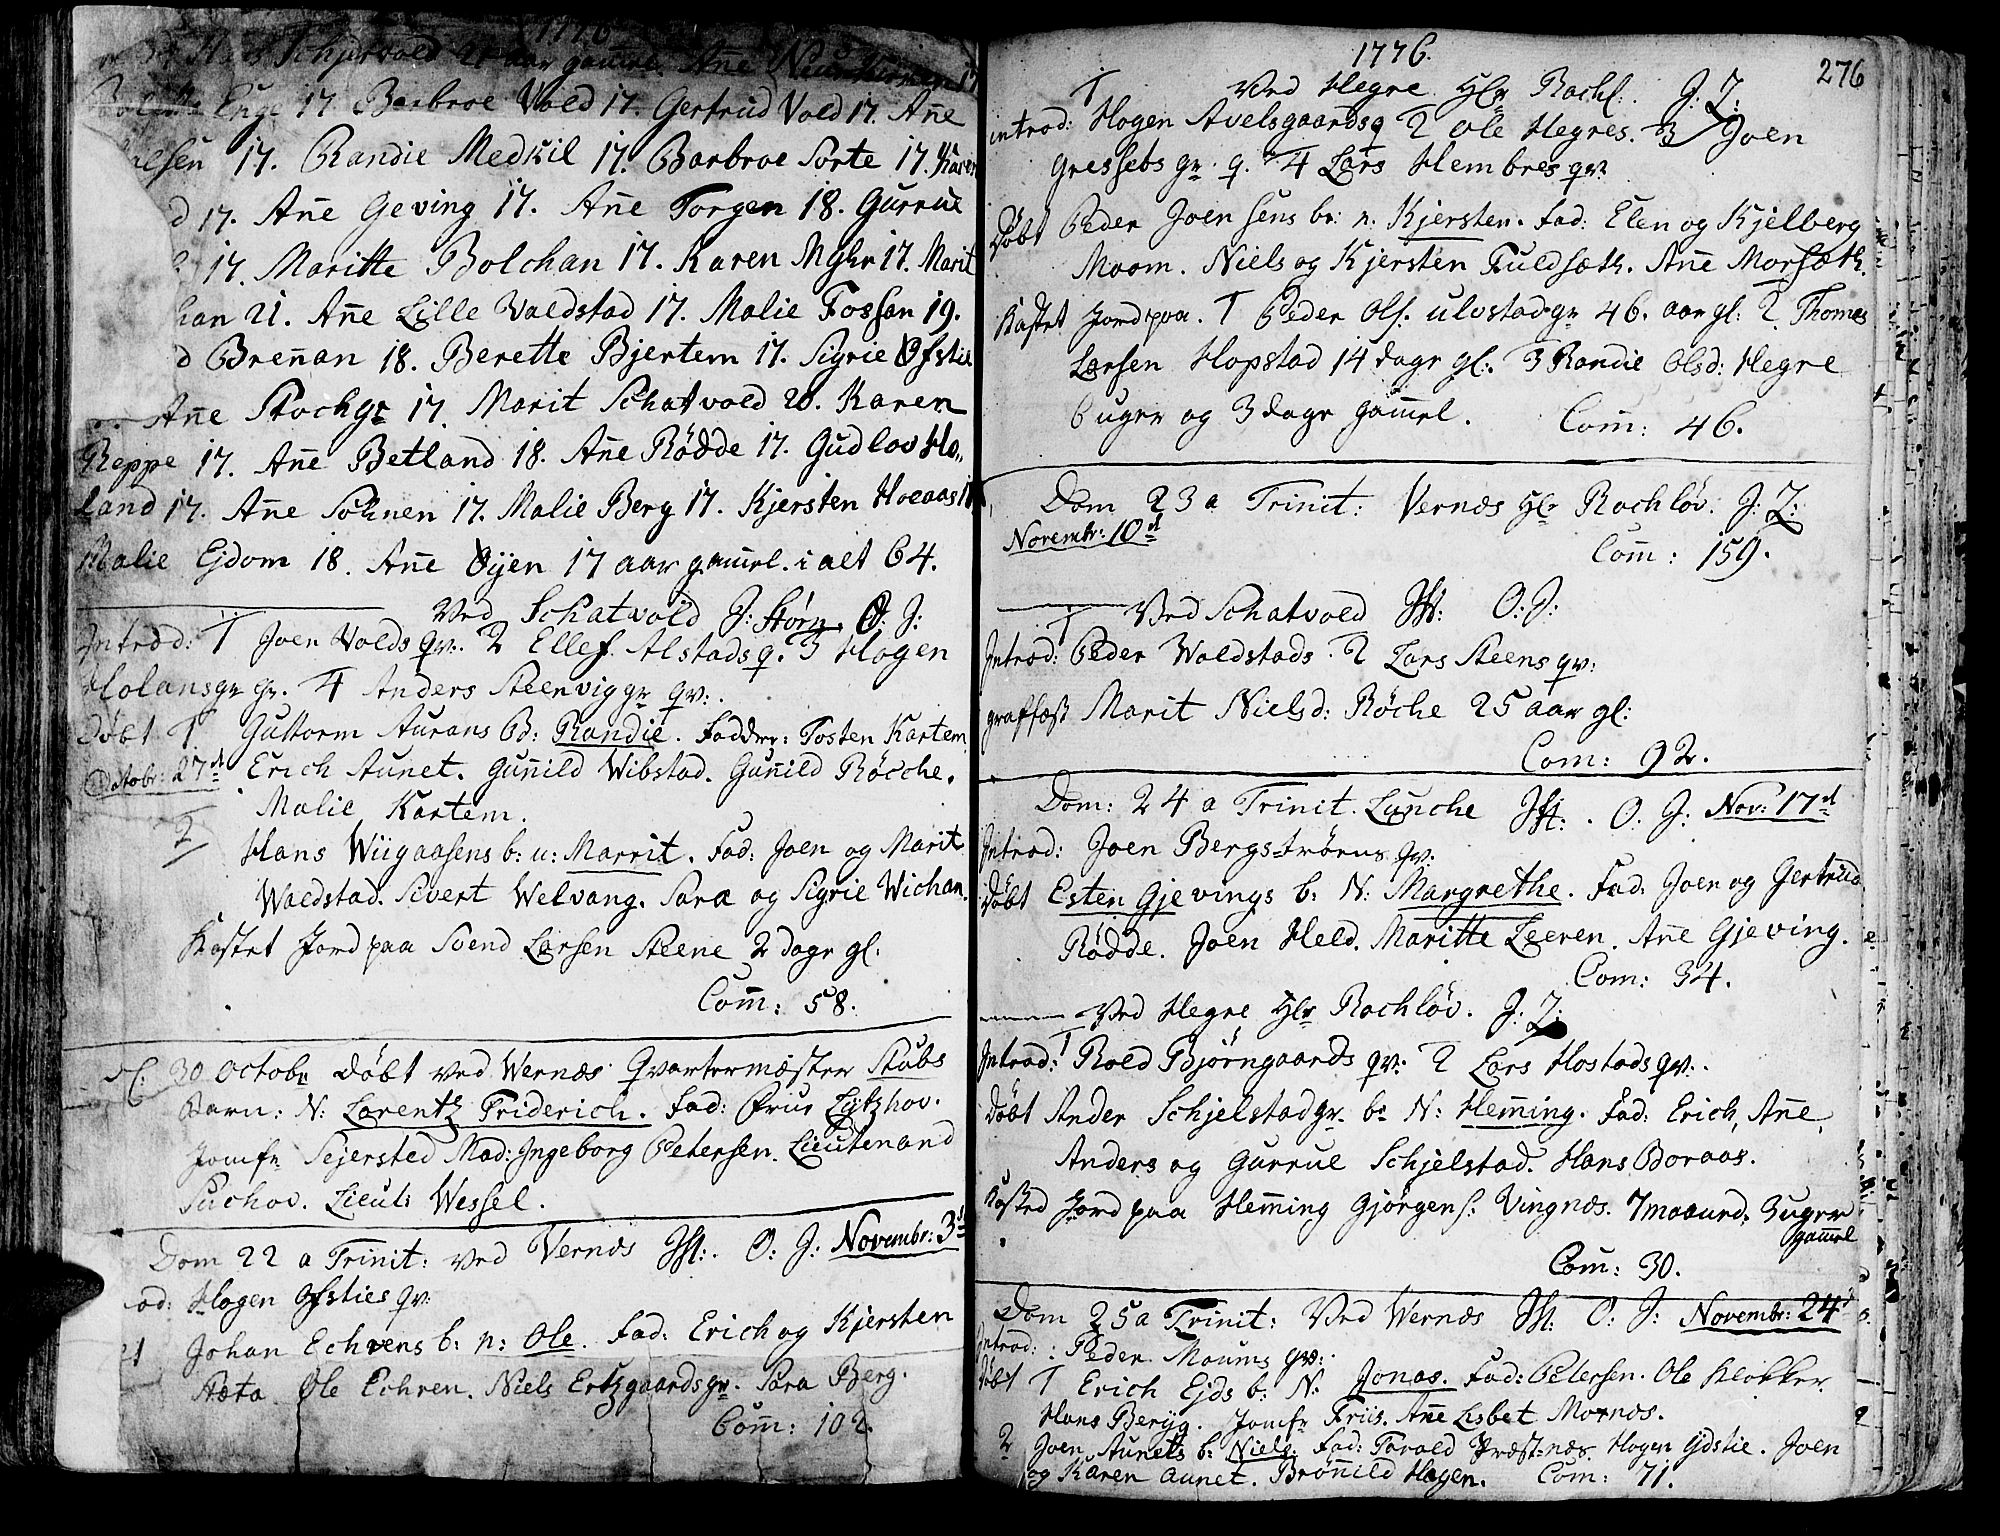 1776
Schjervold 21 aar gam̄el. An̄e 17
Enge 17. Barbroe Vold 17. Gertrud Vold 17. An̄e
elsen 17. Randie Medkil 17. Barbroe Sorte 17. Karen
d 17. An̄e Geving 17. An̄e Torgen 18. Gurrue
17. Maritte Bolchan 17. Karen Myhr 17. Marit
han 21. An̄e Lille Valdstad 17. Malie Fossan 19.
d Bren̄an 18. Berette Bjertem 17. Sigrie Øfstie
An̄e Stochgr 17. Marit Schatvold 20. Karen
Reppe 17. An̄e Betland 18. An̄e Rødde 17. Gudlov Ho„
land 17. An̄e Solmen 17. Malie Berg 17. Kjersten Hoeaas 17
Malie Ejdom 18. An̄e Øyen 17 aar gam̄el. i alt 64.
Ved Schatvold J: Størn. O: J:
Introd: 1 Joen Volds qv: 2 Ellef Alstads q. 3 Hogen
Holansgr qv. 4 Anders Steenviggr qv:.
Døbt 1 Guttorm Aurans B: Randie. Faddre: Tosten Kartem
Octobr: 27d Erich Aunet. Gun̄ild Wibstad. Gun̄ild Røcche.
Malie Kartem.
2 Hans Wiigaasens b: n: Marrit. Fad: Joen og Marit
Waldstad. Sivert Welvang. Sara og Sigrie Wichan.
Kastet Jord paa Svend Larsen Steene 2 dage gl:
Com̄: 58.
30 Octobr døbt ved Wernæs Qvartermæster Stubs
Barn: N: Lorentz Friderich. Fad: Frue Lytzhov.
Jomfr Sejersted Mad: Ingeborg Petersen. Lieutenand
Suchov. Lieut: Wessel.
Dom 22 a Trinit: ved Vernæs JH: O: J: Novembr: 3d
od: Hogen Øfsties qv:
Johan Echrens b: n: Ole. Fad: Erich og Kjersten
Stæta Ole Echren. Niels Ertzgaardsgr. Sara Berg.
Com̄: 102.
1776. 276
Ved Hegre Hlr Rachl: J: J:
introd: 1 Hogen Avelsgaards q 2 Ole Hegres. 3 Joen
Gressets gr q. 4 Lars Hembres qv:
Døbt Peder Joensens br: n: Kjersten. Fad: Elen og Kjelberg
Moom. Niels og Kjersten Fuldsæth. An̄e Morsæth.
Kastet Jord paa. 1 Peder Ols: ulvstadgr 46. aar gl: 2 Thomas
Larsen Hopstad 14 dage gl: 3 Randie Olsd: Hegre
6 uger og 3 dage gam̄el. Com̄: 46.
Dom 23 a Trinit: Vernæs Hlr Rachløv: J: J:
Novembr: 10d Com̄: 159.
Ved Schatvold JH: O: J:
Introd: 1 Peder Waldstads 2 Lars Steens qv:
graffæst Marit Nielsd: Røche 25 aar gl:
Com: 92.
Dom: 24 a Trinit. Lunche JH:. O. J: Nov: 17d
Introd: Joen Bergstrøms qv:
Døbt Esten Gjevings b: N: Margrethe. Fad: Joen og Gertrud
Rødde. Joen Held. Maritte Leeren. An̄e Gjeving.
Com: 34.
Ved Hegre Hlr Rachløv. J: J:
Introd: 1 Roeld Bjørngaards qv: 2 Lars Hostads qv:.
Døbt Ander Schjelstadgr b: N: Hem̄ing. Fad: Erich, An̄e,
Anders og Gurrue Schjelstad. Hans Boraas.
Kasted Jord paa Hem̄ing Gjørgens: Vingnæs. 7 maaned. 3 uger
gam̄el
Com: 30.
Dom 25 a Trinit: Ved Wernæs JH: O: J: Novembr: 24d
Introd: Peder Moums qv:
Døbt 1 Erich Ejds b: N: Jonas. Fad: Petersen. Ole Klokker.
Hans Beryg. Jomfr Friis. An̄e Lisbet Mornæs.
2 Joen Aunets b: Niels. Fad: Tarald Præstnæs. Hogen Øfstie. Joen
og Karen Aunet. Brøn̄ild Hogen. Com: 71.